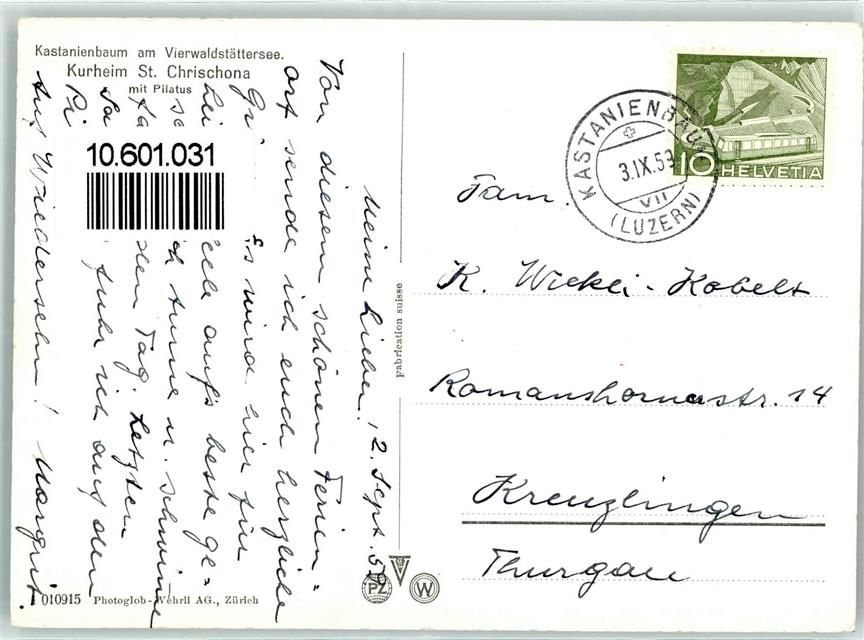 Kastanienbaum am Vierwaldstättersee.
Kurheim St. Chrischona
mit Pilatus
10.601.031
Meine Lieben! 2. Sept. 59
Von diesem schönen Ferien=
ort sende ich euch herzliche
Grü Es wird hier für
Lei aufs beste ge=
so turne u. schwimme
Tag. Letzten
Sa fuhr ich auf den
Pi
Auf Wiedersehn! Margrit.
010915 Photoglob-Wehrli AG., Zürich
Fabrication suisse
PZ
W
KASTANIENBAUM
3.IX.59
VII
(LUZERN)
10 HELVETIA
Fam.
K. Wickli-Kobelt
Romanshornerstr. 14
Kreuzlingen
Thurgau